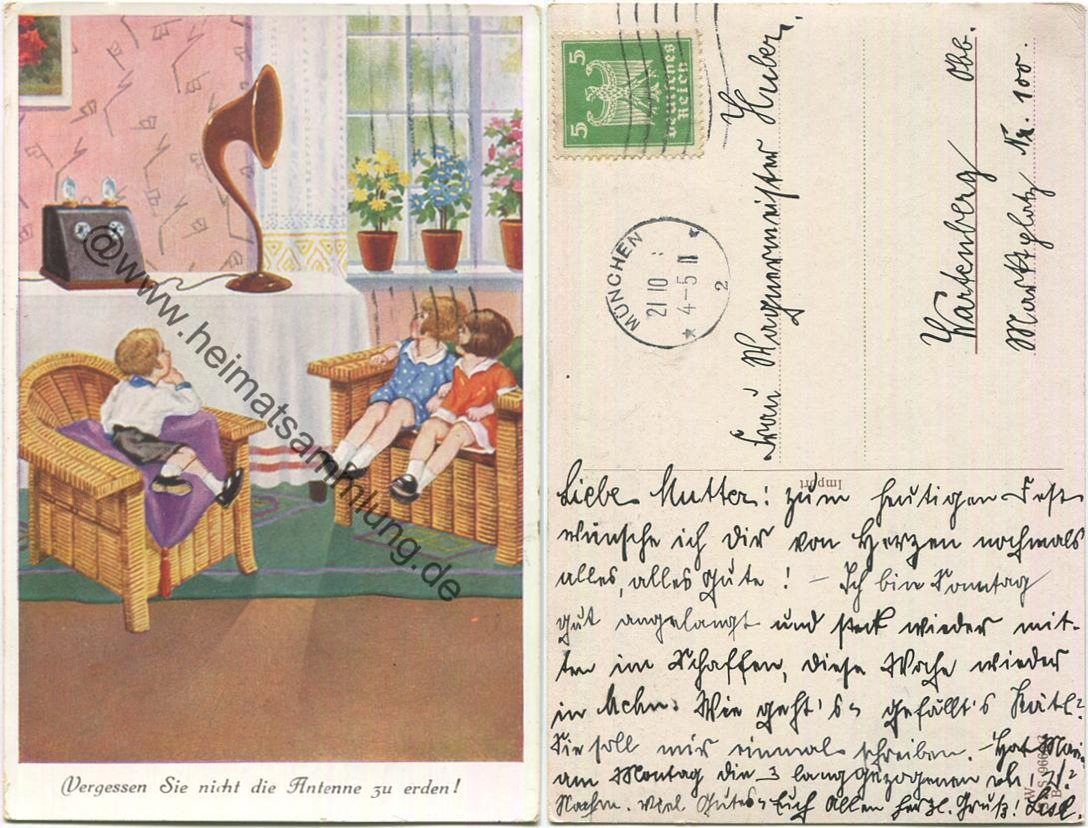 Vergessen Sie nicht die Antenne zu erden!
@www.heimatsammlung.de
5 5
Deutsches
Reich
MÜNCHEN
21 10
* 4-5 N
2
Frau Wagnermeister Huber.
Wartenberg Obb.
Marktplatz Nr. 100.
Import
Liebe Mutter! Zum heutigen Fest
wünsche ich dir von Herzen nochmals
alles, alles Gute! – Ich bin Sonntag
gut angelangt und steck wieder mit-
ten im Schaffen, diese Woche wieder
in Wie geht's, gefällt's Kätl?
Sie soll mir einmal schreiben. – Hat
am Montag die 3 langgezogenen
Viel Gutes, Euch Allen herzl. Gruß!